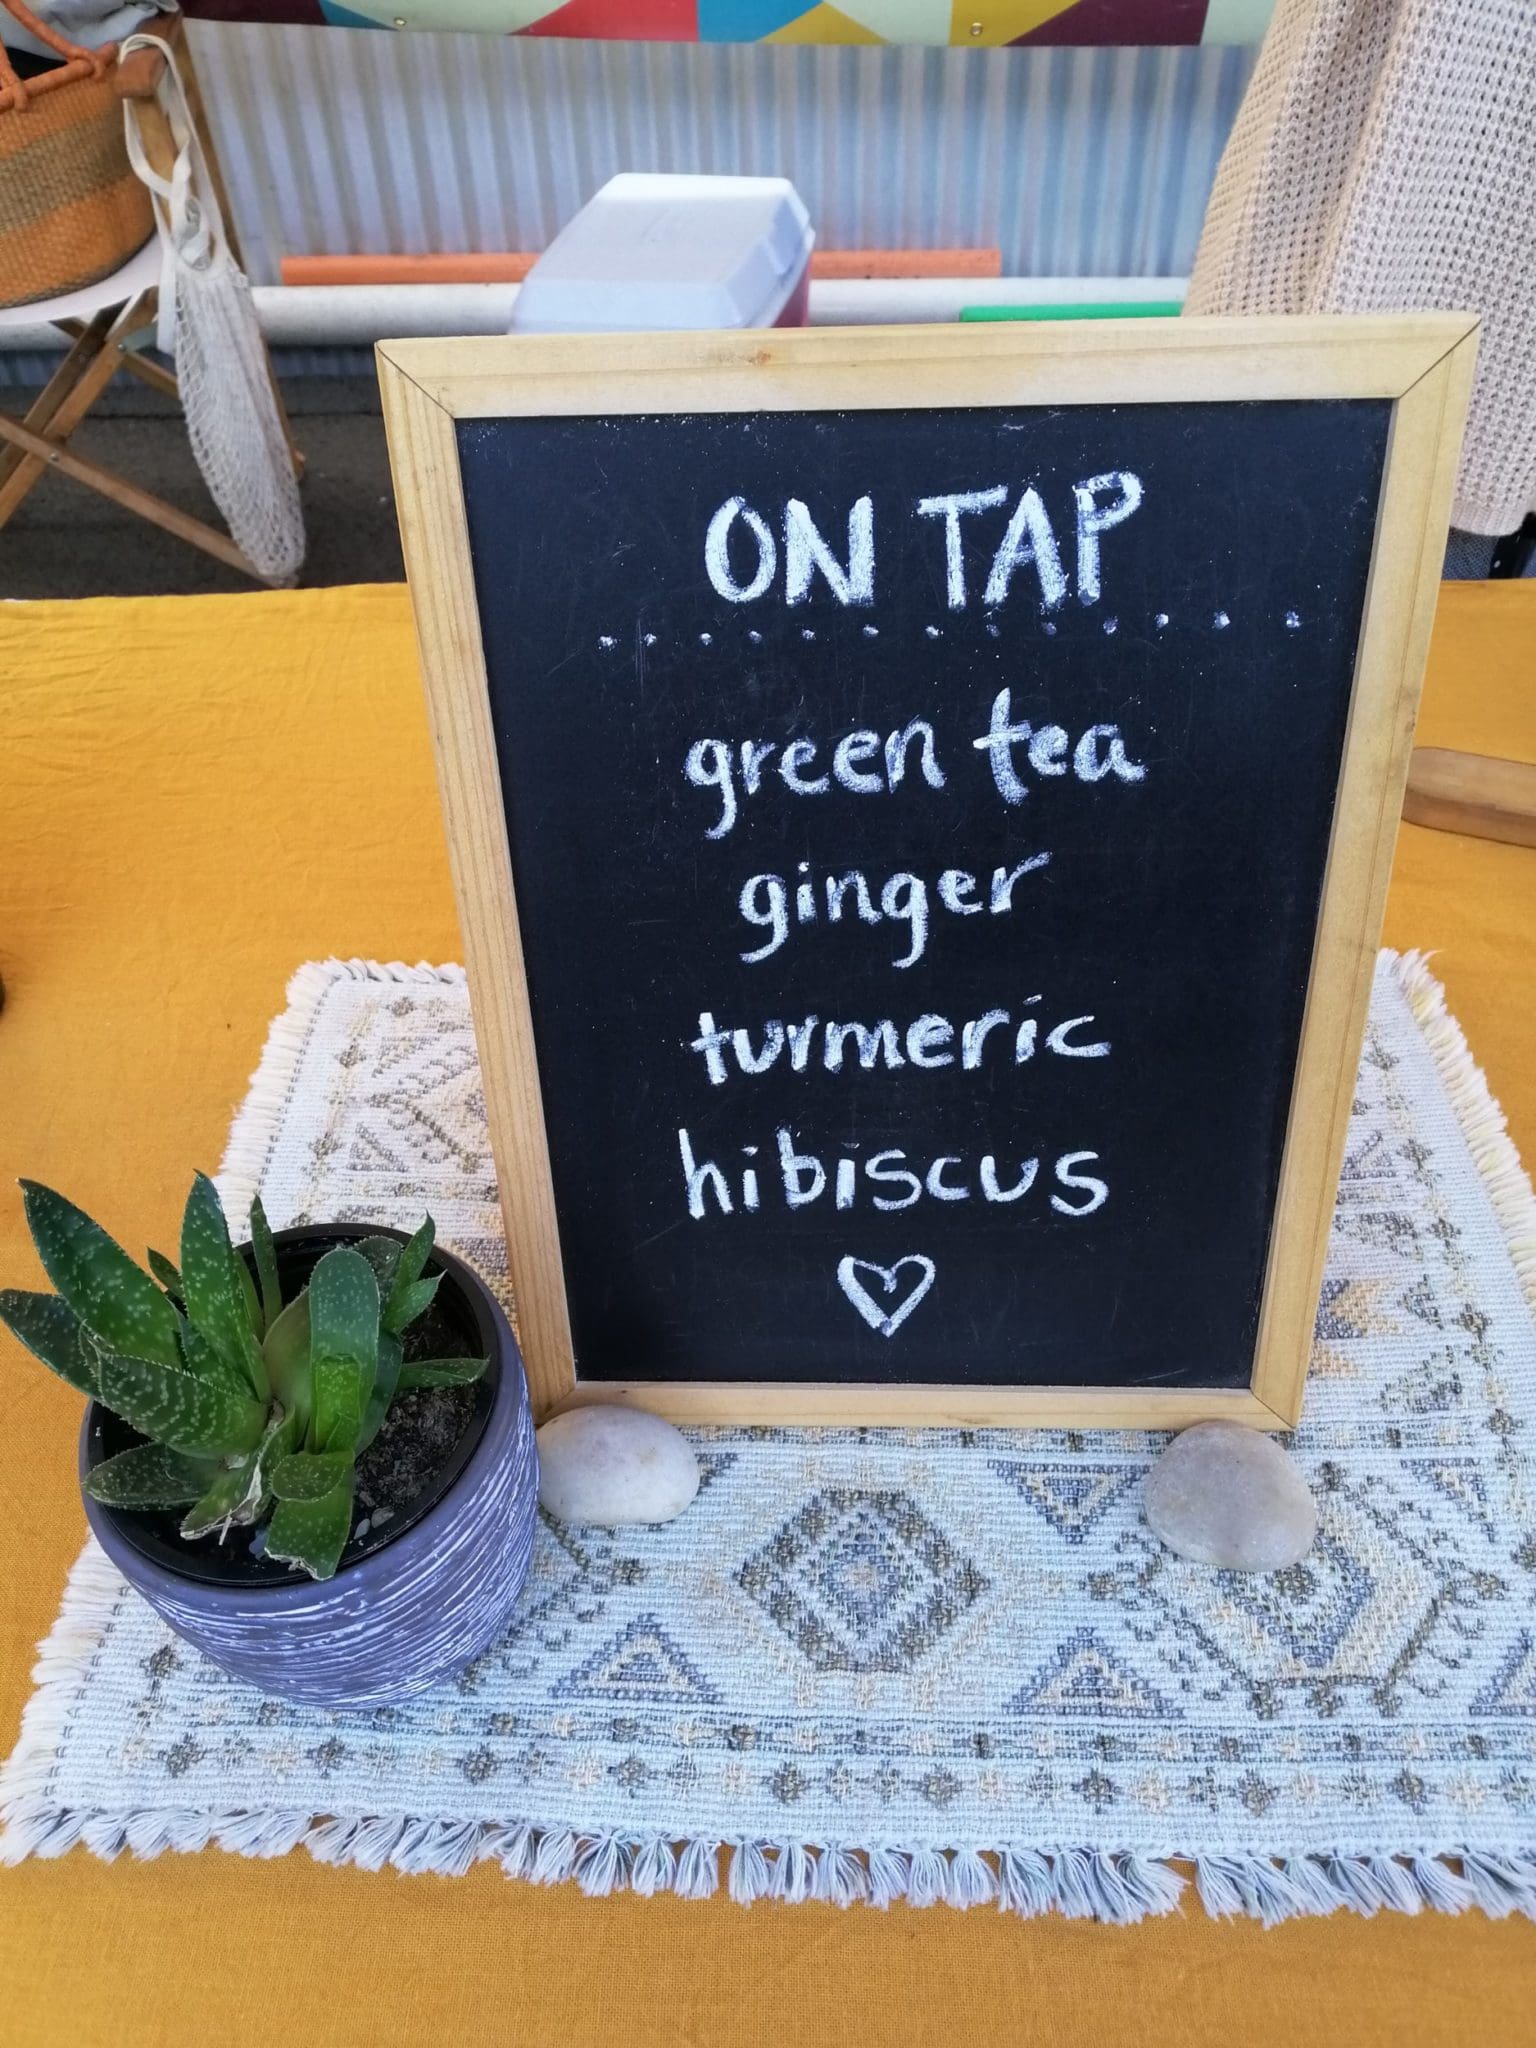 ON TAP
green tea
ginger
turmeric
hibiscus